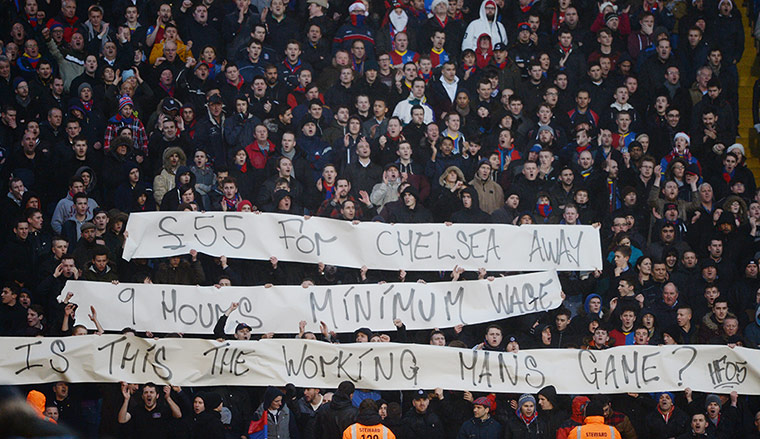 £55 FOR CHELSEA AWAY
9 HOURS MINIMUM WAGE
IS THIS THE WORKING MANS GAME? HF05
STEWARD
120
STEWARD